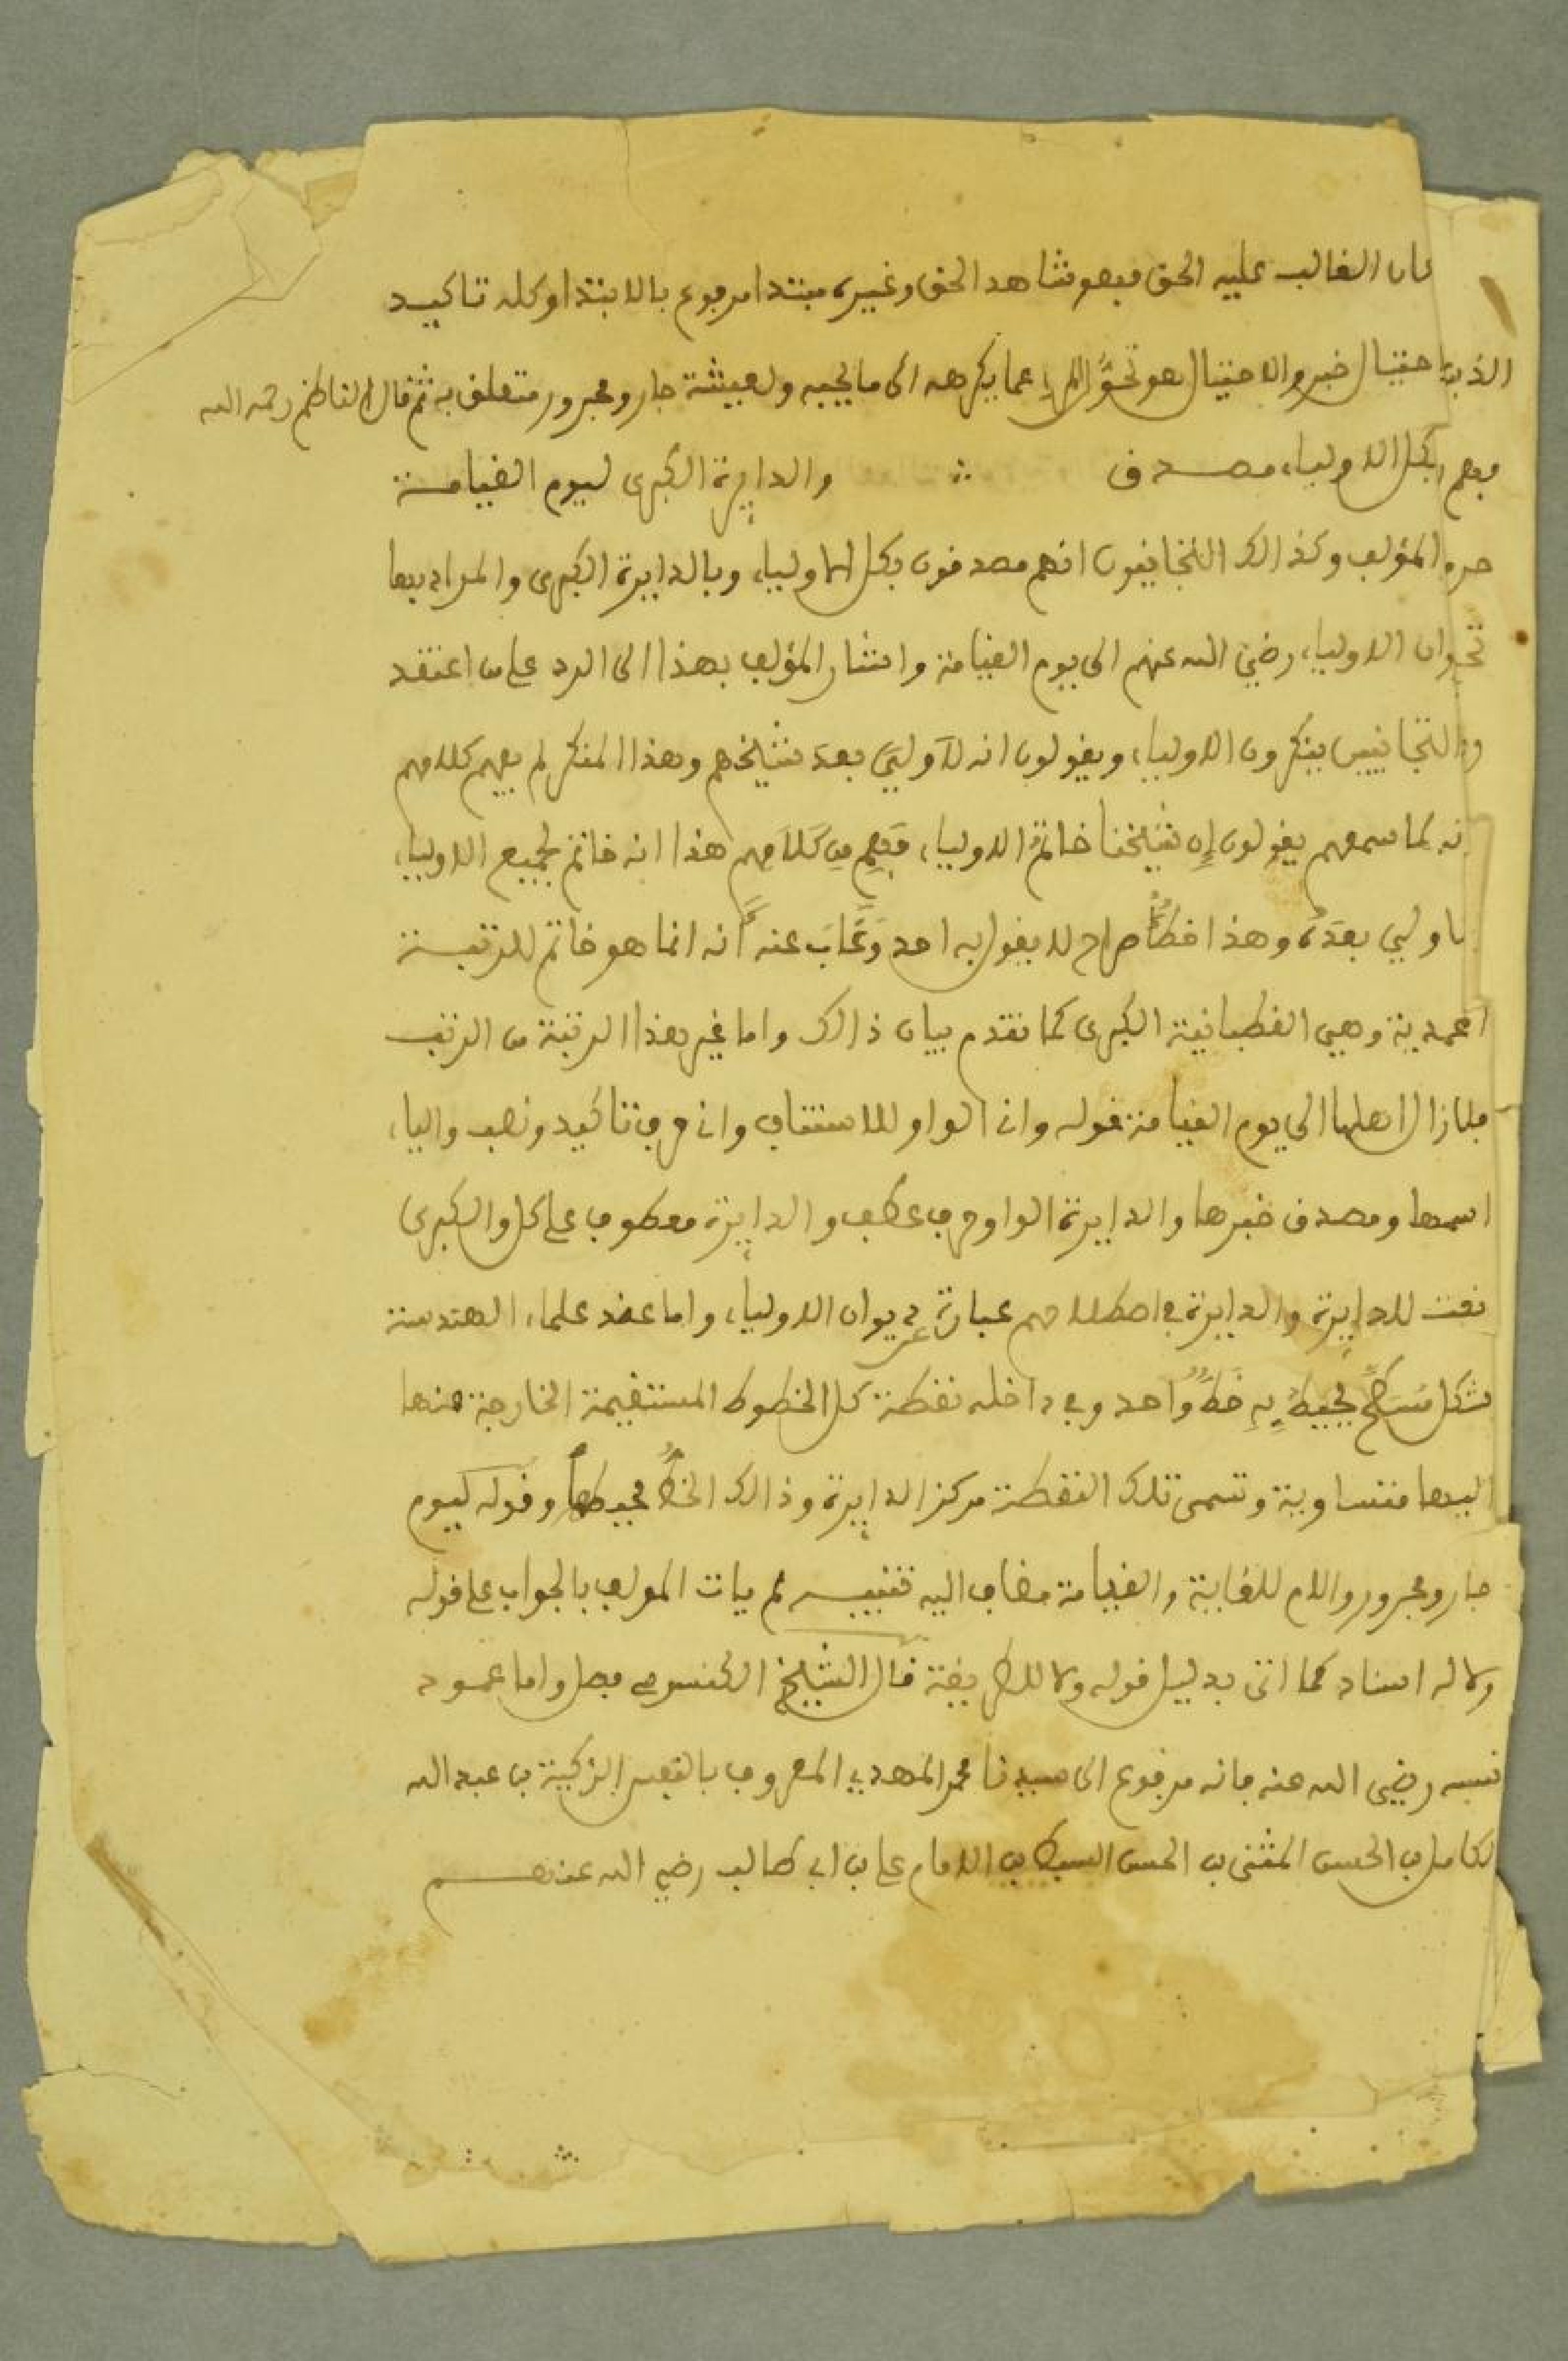 كان الغالب عليه الحق فهو شاهد الحق وغيره مبتدا مرفوع بالابتدا وكله تاكيد
احتيال خبر والاحتيال هو تحوُّل المرء عما يكرهه الى ما يحبه ولعيشة جار ومجرور متعلق به ثم قال الناظم رحمه الله
بكل الاولياء مصدق ∴ والدايرة الكبرى ليوم القيامـة
المؤلف وكذالك التجانيون انهم مصدقون بكل الاولياء وبالدايرة الكبرى والمراد بها
ديوان الاولياء رضي الله عنهم الى يوم القيامة واشار المؤلف بهذا الى الرد على من اعتقد
التجانيين ينكرون الاولياء ويقولون انه لا وليَّ بعد شيخهم وهذا المنكر لم يفهم كلامهم
انه لما سمعهم يقولون إن شيخنا خاتم الاولياء فَفَهِم مِن كَلاَمِهِم هذا انه خاتم لجميع الاولياء
ولي بعدَهُ وهذا خطأ صراح لا يقول به احد وَغَابَ عنه أنه انما هو خاتم للرتبـة
المحمدية وهي القطبانية الكبرى كما تقدم بيان ذالك واما غير هذا الرتبة من الرتب
فلا زال اهلها الى يوم القيامة قوله وانى الواو للاستئناف وانى حرف تاكيد ونصب والياء
اسمها ومصدق خبرها والدايرة الواو حرف عطف والدايرة معطوف على كل والكبرى
نعت للدايرة والدايرة في اصطلاحهم عبارة عن ديوان الاولياء واما عند علماء الهندسة
شكل مُسَطَّحٌ يُحِيطُ بِهِ خَطٌّ وَاحد وفي داخله نقطة كل الخطوط المستقيمة الخارجة منها
اليها متساوية وتسمى تلك النقطة مركز الدايرة وذالك الخطُّ محيطها وقوله ليوم
جار ومجرور واللام للغاية والقيامة مضاف اليه تنبيـه لم يات المولف بالجواب على قوله
ولا له اسناد كما اتى بدليل قوله ولا للطريقة قال الشيخ الكنسوسي فصل واما عمـود
نسبه رضي الله عنه فانه مرفوع الى سيدنا محمد المهدي المعروف بالنفس الزكية بن عبد الله
الكامل بن الحسن المثنى بن الحسن السبط بن الامام علي بن ابي طالب رضي الله عنهـم